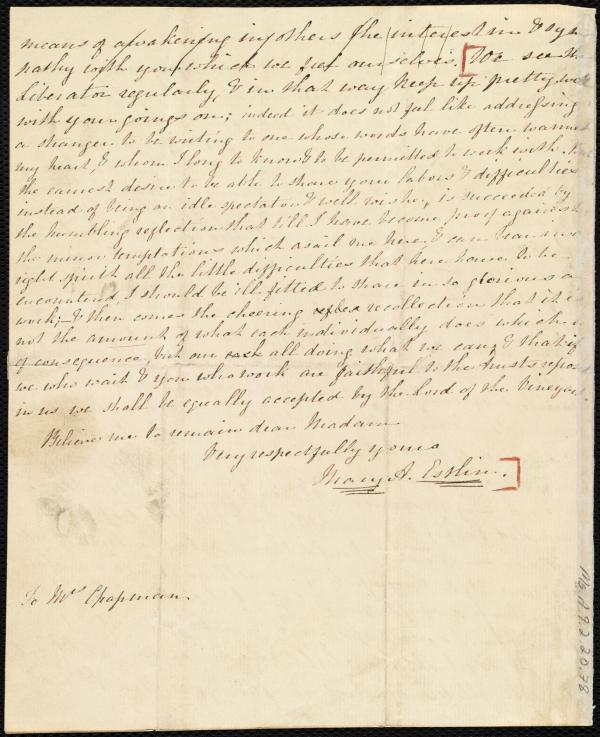 means of awakening in others the interest in & sym
pathy with you which we feel ourselves. [We see the
Liberator regularly, & in that way keep up pretty well
with your goings on; indeed it does not feel like addressing
a stranger to be writing to one whose words have often warmed
my heart, & whom I long to know & to be permitted to work with.
the earnest desire to be able to share your labors & difficulties
instead of being an idle spectator & well wisher, is succeeded by
the humbling reflection that till I have become proof against
the minor temptations which assail me here & can bear in a
right spirit all the little difficulties that here have to be
encountered, I should be ill fitted to share in so glorious a
work; & then comes the cheering recollection that it is
not the amount of what each individually does which is
of consequence, but our each all doing what we can, & that if
we who wait & you who work are faithful to the trusts repos
in us we shall be equally accepted by the Lord of the Vineyard.
Believe me to remain dear Madam
Very respectfully yours
Mary A. Estlin.]
To Mrs Chapman.
Ms. A.9.2.20.78